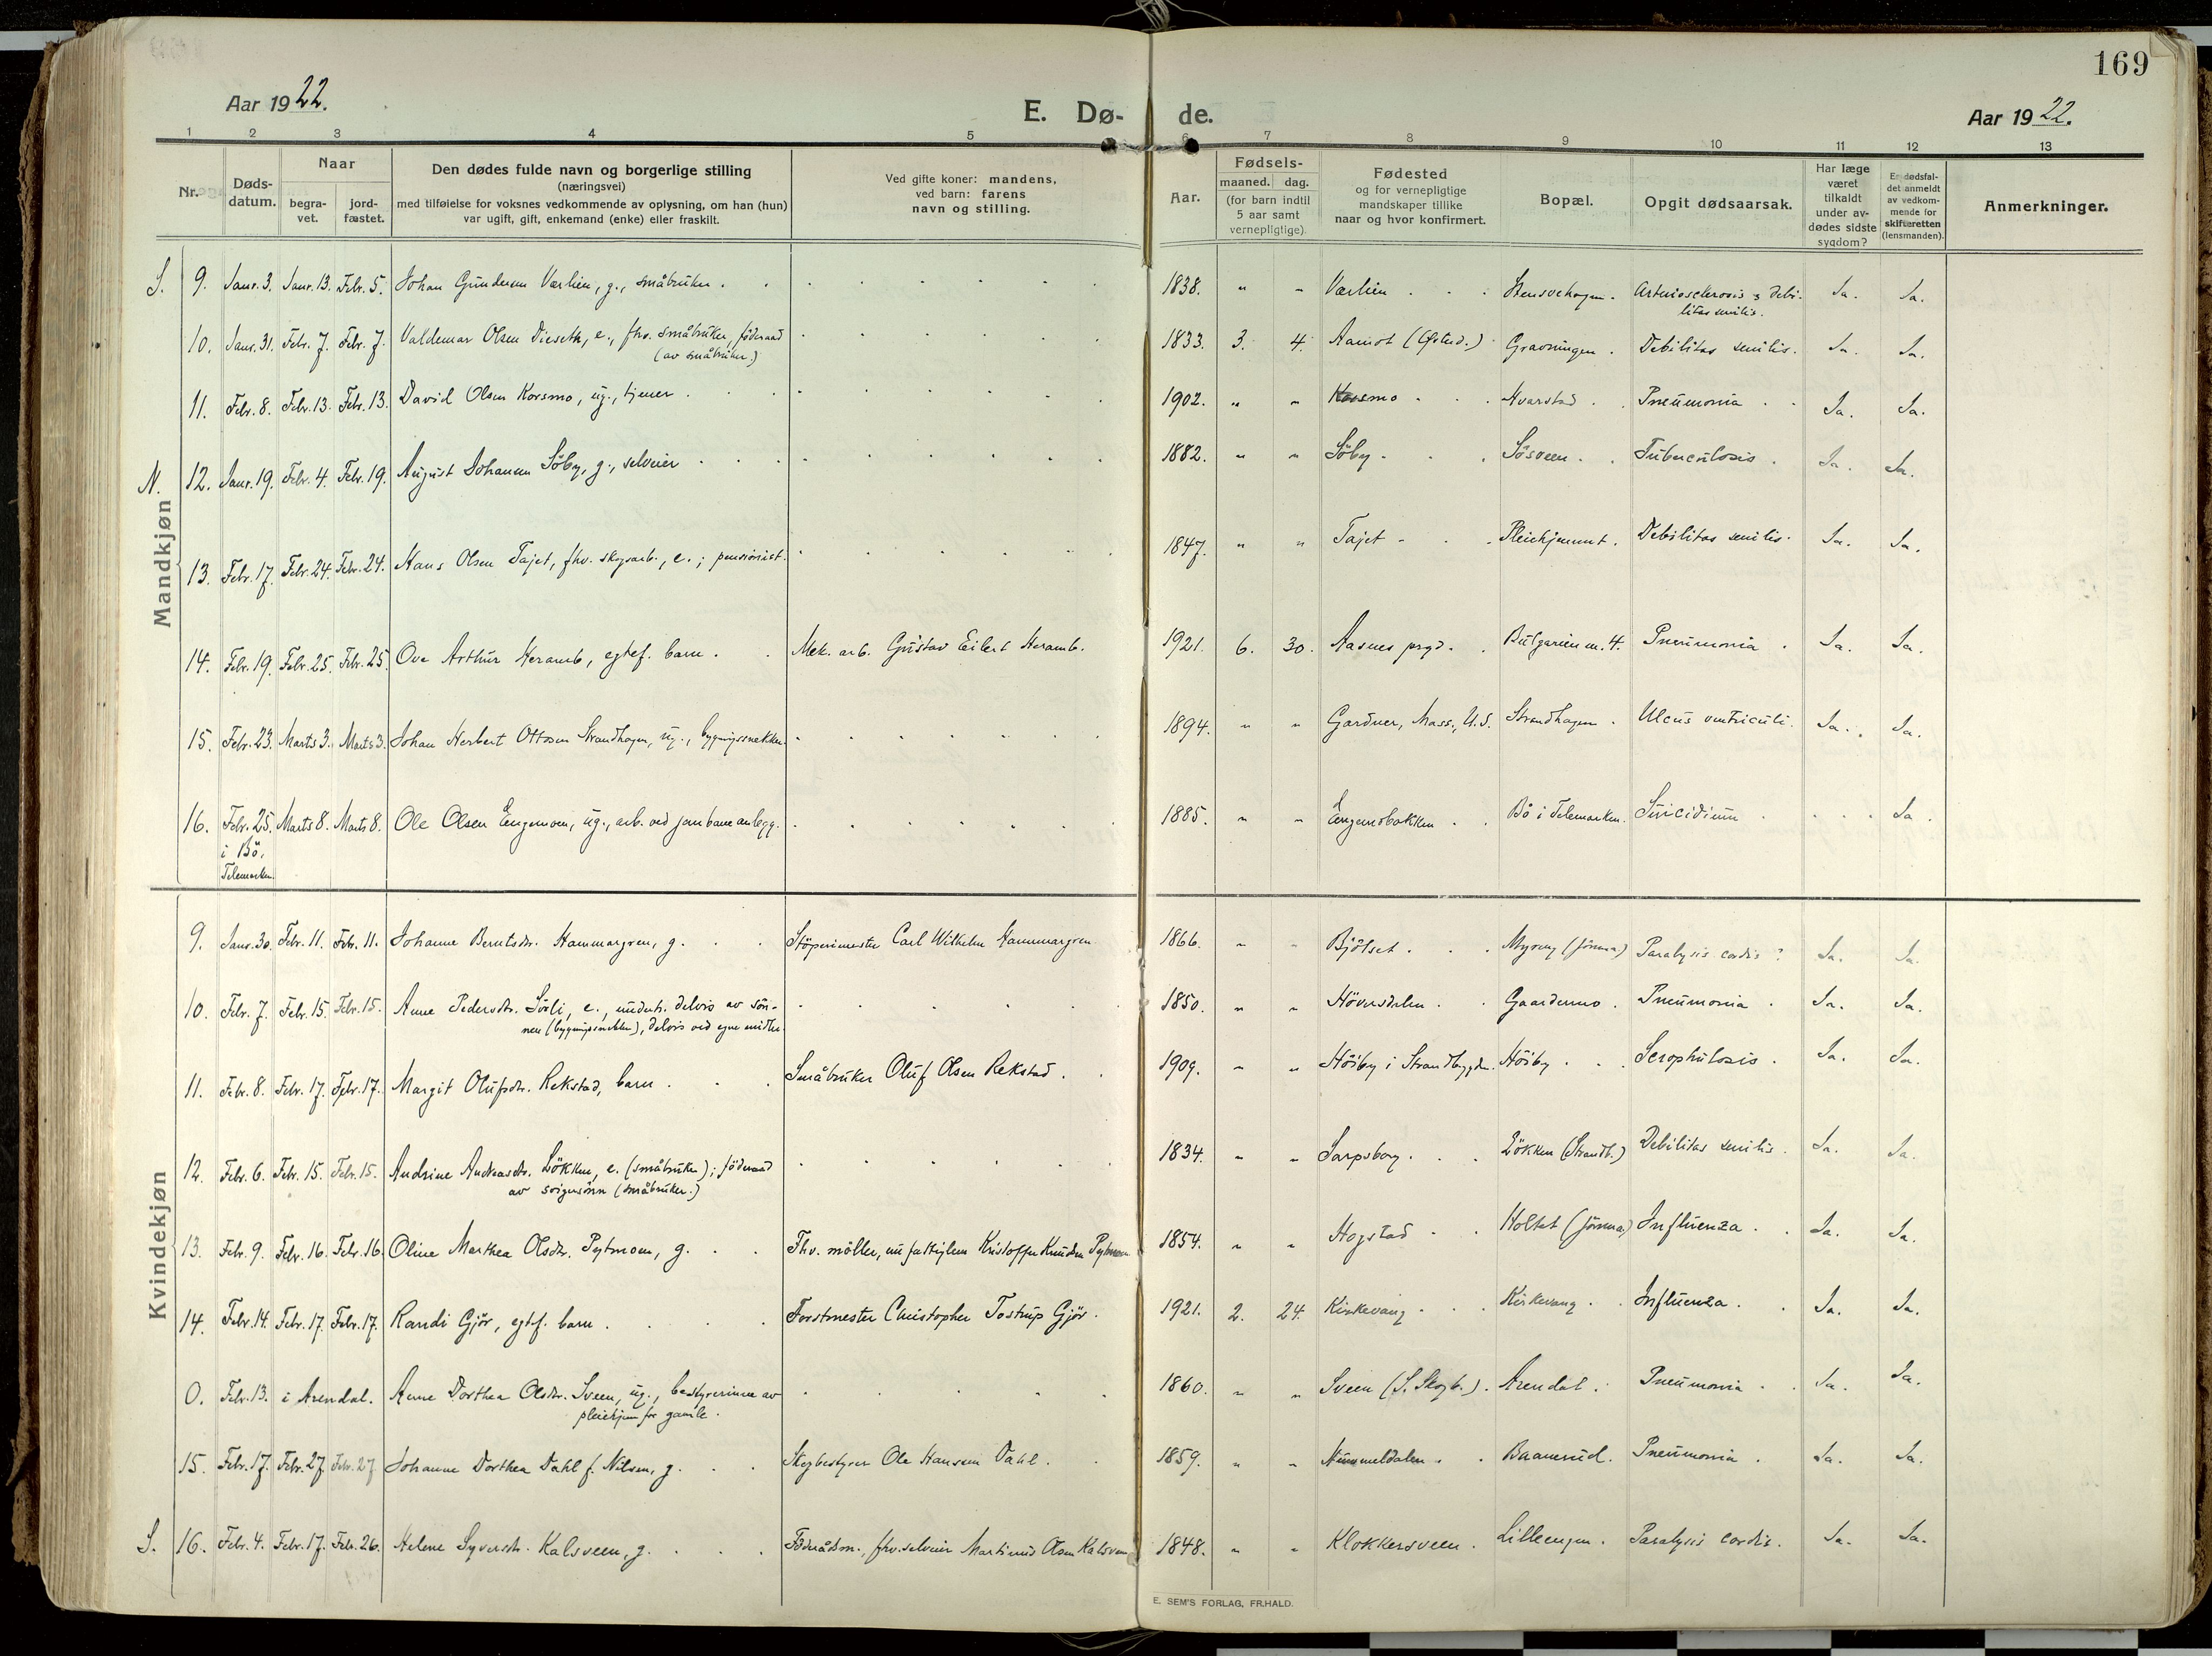 169
Aar 1922.
E. Dø- de.
Aar 1922.
1 2 3 4 5 6 7 8 9 10 11 12 13
Nr. Døds-datum. Naar begra-vet. jord-fæstet. Den dødes fulde navn og borgerlige stilling (næringsvei) med tilføielse for voksnes vedkommende av oplysning, om han (hun) var ugift, gift, enkemand (enke) eller fraskilt. Ved gifte koner: mandens, ved barn: farens navn og stilling. Aar. Fødsels- maaned. dag. (for barn indtil 5 aar samt vernepligtige). Fødested og for vernepligtige mandskaper tillike naar og hvor konfirmert. Bopæl. Opgit dødsaarsak. Har læge været tilkaldt under av-dødes sidste sygdom? Er dødsfal-det anmeldt av vedkom-mende for skifteretten (lensmanden). Anmerkninger.
Mandkjøn
S. 9. Janr. 3. Janr. 13. Febr. 5. Johan Gundersen Værlien, g., småbruker. 1838. " " Værlien Stensvehagen. Arteriosclerosis & debi-
litas senilis. Ja. Ja.
10. Janr. 31. Febr. 7. Febr. 7. Valdemar Olsen Dieseth, e., fhv. småbruker, föderaad
(av småbruker.) 1833. 3. 4. Aamot (Østerd.) Gravningen. Debilitas senilis. Ja. Ja.
11. Febr. 8. Febr. 13. Febr. 13. David Olsen Korsmo, ug., tjener. 1902. " " Korsmo Hvarstad. Pneumonia. Ja. Ja.
N. 12. Janr. 19. Febr. 4. Febr. 19. August Johansen Söby, g., selveier 1882. " " Söby Sösveen. Tuberculosis. Ja. Ja.
13. Febr. 17. Febr. 24. Febr. 24. Hans Olsen Tajet, fhv. skogsarb., e.; pensionist. 1847. " " Tajet Pleiehjemmet. Debilitas senilis. Ja. Ja.
14. Febr. 19. Febr. 25. Febr. 25. Ove Arthur Heramb, egtef. barn. Mek. arb. Gustav Eilert Heramb. 1921. 6. 30. Aasnes prgd. Bulgarien m. 4. Pneumonia. Ja. Ja.
15. Febr. 23. Marts 3. Marts 3. Johan Herbert Ottosen Strandhagen, ug., bygningssnekker. 1894. " " Gardner, Mass., U.S. Strandhagen. Ulcus ventriculi. Ja. Ja.
16. Febr. 25. Marts 8. Marts 8. Ole Olsen Engemoen, ug., arb. ved jernbaneanlegg. 1885. " " Engemobakken Bö i Telemarken. Suicidium Ja.
i Bö.
Telemarken.
Kvindekjøn
9. Janr. 30. Febr. 11. Febr. 11. Johanne Berntsdr. Hammargren, g. Stöperimester Carl Wilhelm Hammargren 1866. " " Bjölset Paralysis cordis? Ja. Ja.
10. Febr. 7. Febr. 15. Febr. 15. Anne Pedersdtr. Sörli, e., underh. delvis av sön-
nen (bygningssnekker), delvis ved egne midler. 1850. " " Höversdalen Gaardermo. Pneumonia. Ja. Ja.
11. Febr. 8. Febr. 17. Febr. 17. Margit Olufsdr. Rekstad, barn Småbruker Oluf Olsen Rekstad. 1909. " " Höiby i Strandbygden. Höiby Scrophulosis. Ja. Ja.
12. Febr. 6. Febr. 15. Febr. 15. Andrine Andreasdr. Lökken, e. (småbruker); föderaad
av svigersönn (småbruker.) 1834. " " Sarpsborg. Lökken (Strandb.) Debilitas senilis. Ja. Ja.
13. Febr. 9. Febr. 16. Febr. 16. Oline Marthea Olsdr. Pytmoen, g. Fhv. möller, nu fattiglem Kristoffer Knudsen Pytmoen 1854. " " Hogstad Holtet (Jömna) Influenza. Ja. Ja.
14. Febr. 14. Febr. 17. Febr. 17. Randi Gjör, egtef. barn Forstmester Christopher Tostrup Gjör. 1921. 2. 24. Kirkevang Kirkevang. Influenza. Ja. Ja.
0. Febr. 13. i Arendal. Anne Dorthea Olsdr. Sveen, ug., bestyrerinne av
pleiehjem for gamle. 1860. " " Sveen (S. Skogb.). Arendal. Pneumonia. Ja. Ja.
15. Febr. 17. Febr. 27. Febr. 27. Johanne Dorthea Dahl f. Nilsen, g. Skogbestyrer Ole Hansen Dahl. 1859. " " Nummeldalen. Baanerud. Pneumonia. Ja. Ja.
S. 16. Febr. 4. Febr. 17. Febr. 26. Helene Syversdr. Kalsveen, g. Föderådsm., fhv. selveier Martinus Olsen Kalsveen 1848. " " Klokkersveen. Lilleengen. Paralysis cordis. Ja. Ja.
E. SEM'S FORLAG, FR.HALD.